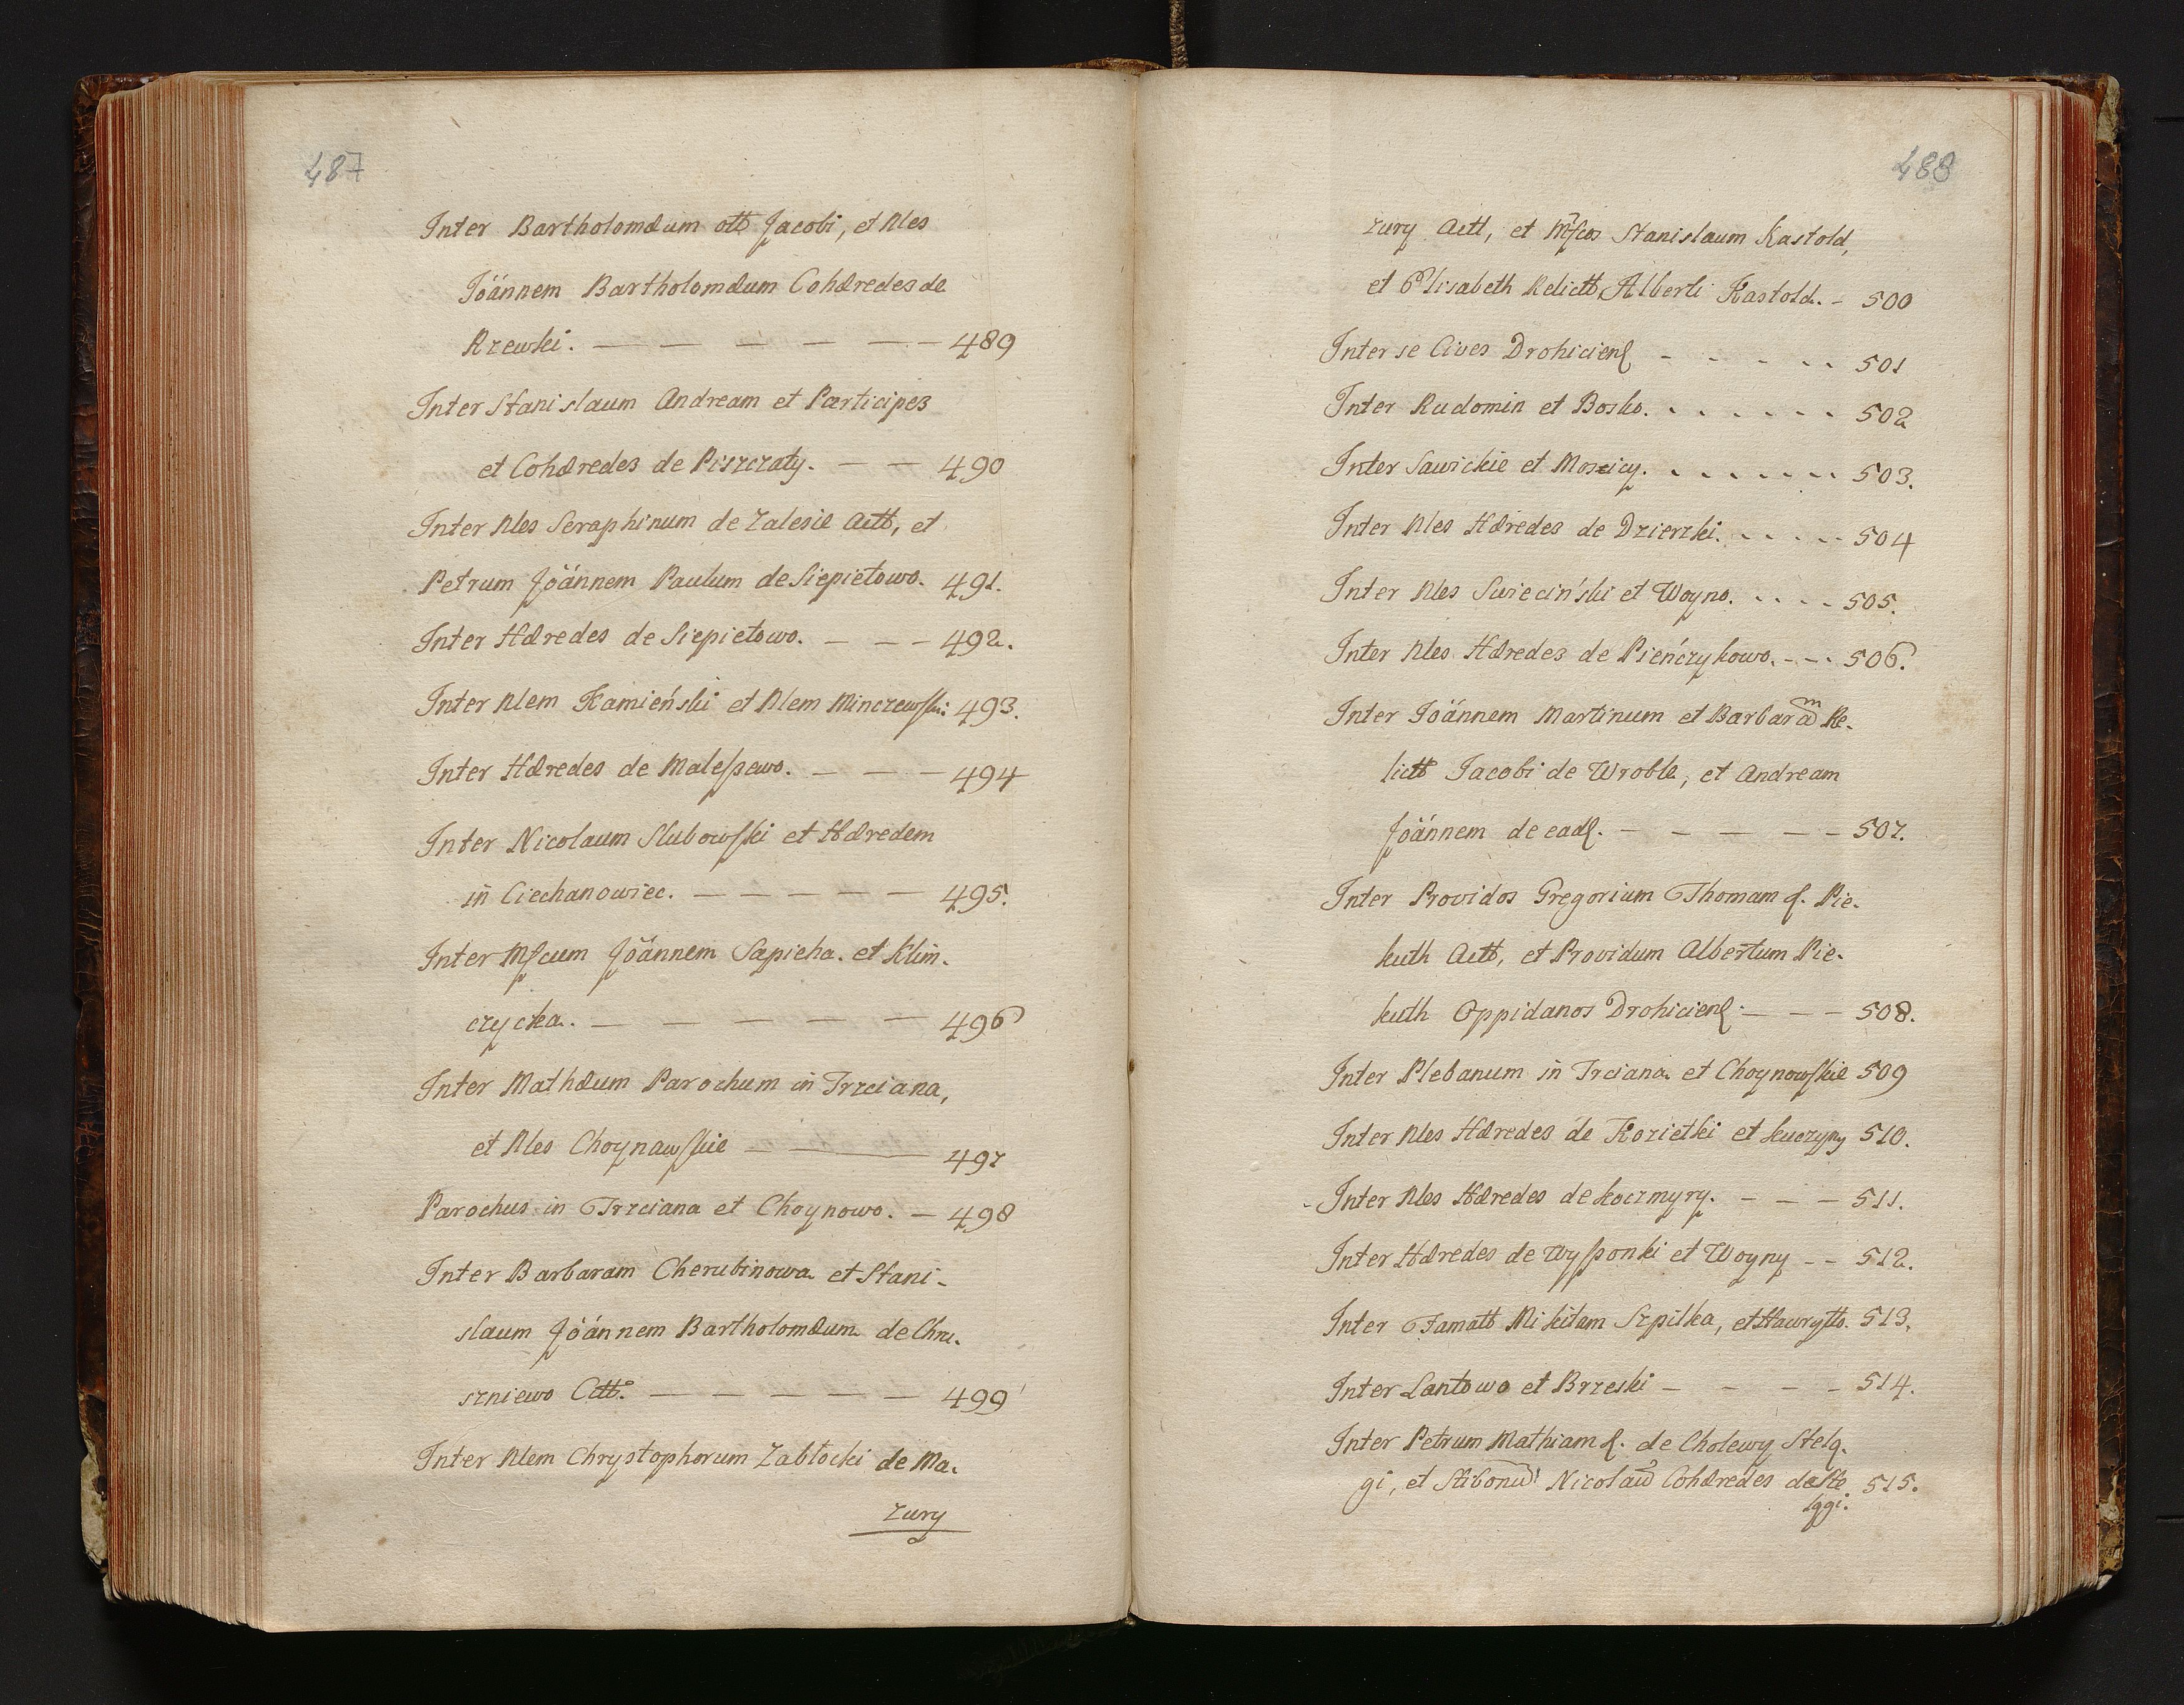 487
Inter Bartholomæum ott Jacobi, et Nles
Joännem Bartholomæum Cohæredes de
Rzewski. — — — — — — 489
Inter Stanislaum Andream et Participes
et Cohæredes de Piszczaty. — — 490
Inter Nles Seraphinum de Zalesie Actt, et
Petrum Joännem Paulum de Siepietowo. 491.
Inter Hæredes de Siepietowo. — — — 492.
Inter Nlem Kamieński et Nlem Minczewski: 493.
Inter Hæredes de Malespewo. — — — 494
Inter Nicolaum Slubowski et Hæredem
in Ciechanowiec. — — — — — 495.
Inter Mfcum Joännem Sapieha. et Klim-
czycka. — — — — — 496
Inter Mathæum Parochum in Trzciana,
et Nles Choynawskie — — 497
Parochus in Trzciana et Choynowo. — 498
Inter Barbaram Cherubinowa et Stani-
slaum Joännem Bartholomæum de Chru-
szniewo Citt. — — — — — 499
Inter Nlem Chrystophorum Zabłocki de Ma-
zury
488
zury Actt, et Mfcos Stanislaum Kastold,
et Elisabeth Relictt Alberti Kastold. - 500
Inter se Cives Drohiciens - - - - - 501
Inter Rudomin et Bosko. . . . . . . 502
Inter Sawickie et Moscicy. . . . . . . 503.
Inter Nles Hæredes de Dzierzki. . . . - 504
Inter Nles Swieciński et Woyno. . . . - 505.
Inter Nles Hæredes de Pieńczykowo. - - - 506.
Inter Joännem Martinum et Barbaram Re-
lictt Jacobi de Wroble, et Andream
Joännem de ead. — — — — — 507.
Inter Providos Gregorium Thomam &. Pie-
kuth Actt, et Providum Albertum Pie-
kuth Oppidanos Drohiciens — — — 508.
Inter Plebanum in Trciana et Choynowskie 509
Inter Nles Hæredes de Kozietki et Kuczyny 510.
Inter Nles Hæredes de Koczmyry. — — — 511.
Inter Hæredes de Wysponki et Woyny - - 512.
Inter Famatt Mikitam Szpilka, et Hawrytt. 513.
Inter Lantowo et Brzeski — - - - 514.
Inter Petrum Mathiam &. de Cholewy Stelą-
gi, et Nicolaum Cohæredes de Ste 515.
lągi.